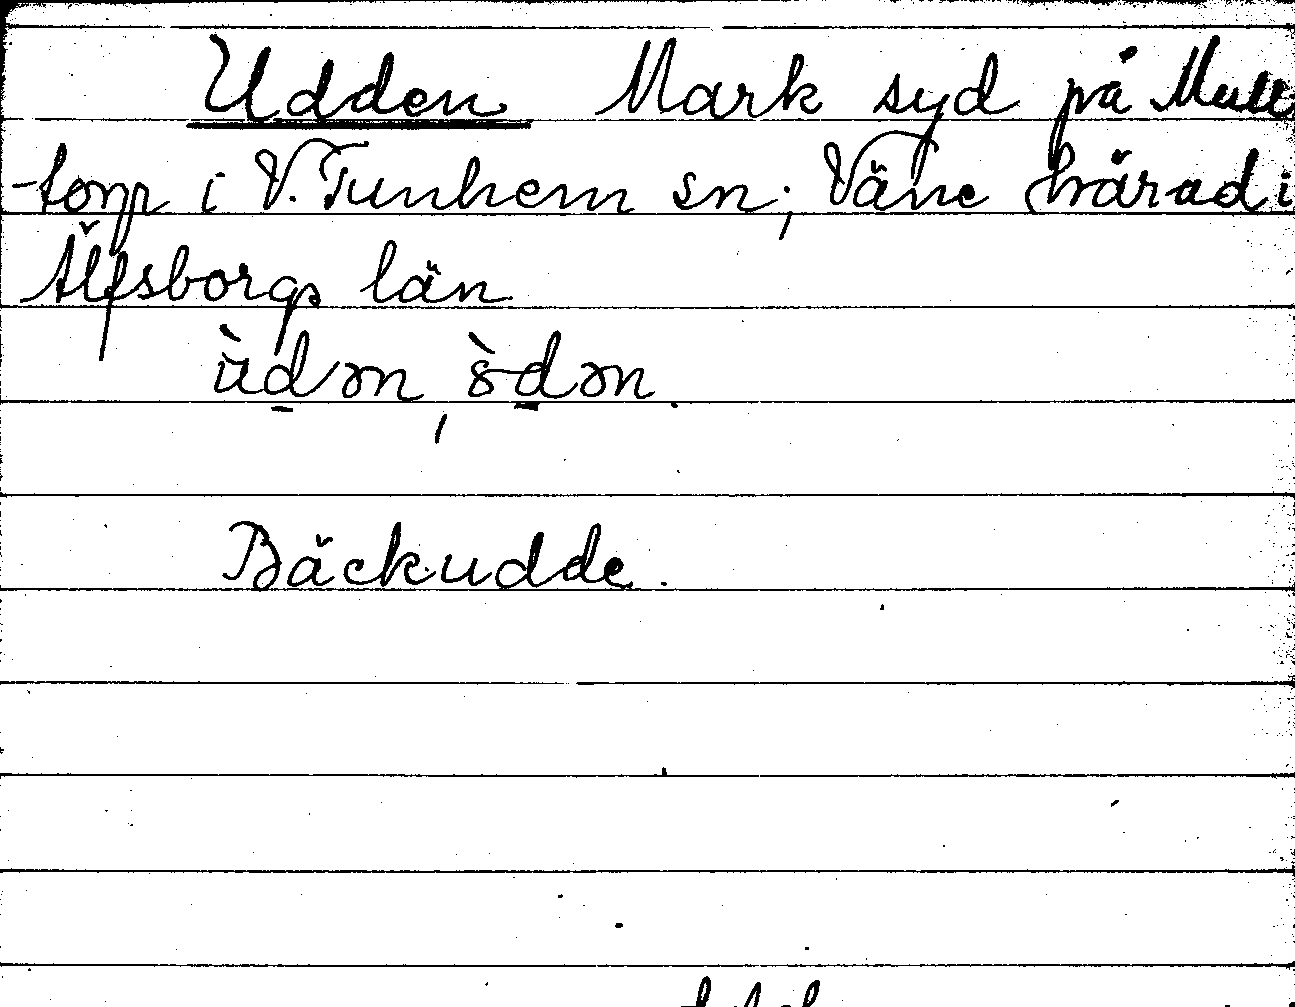 Udden Mark syd på Mull
-torp i V. Tunhem sn, Väne härad i
Älfsborgs län
ùdən, òdən.
Bäckudde.